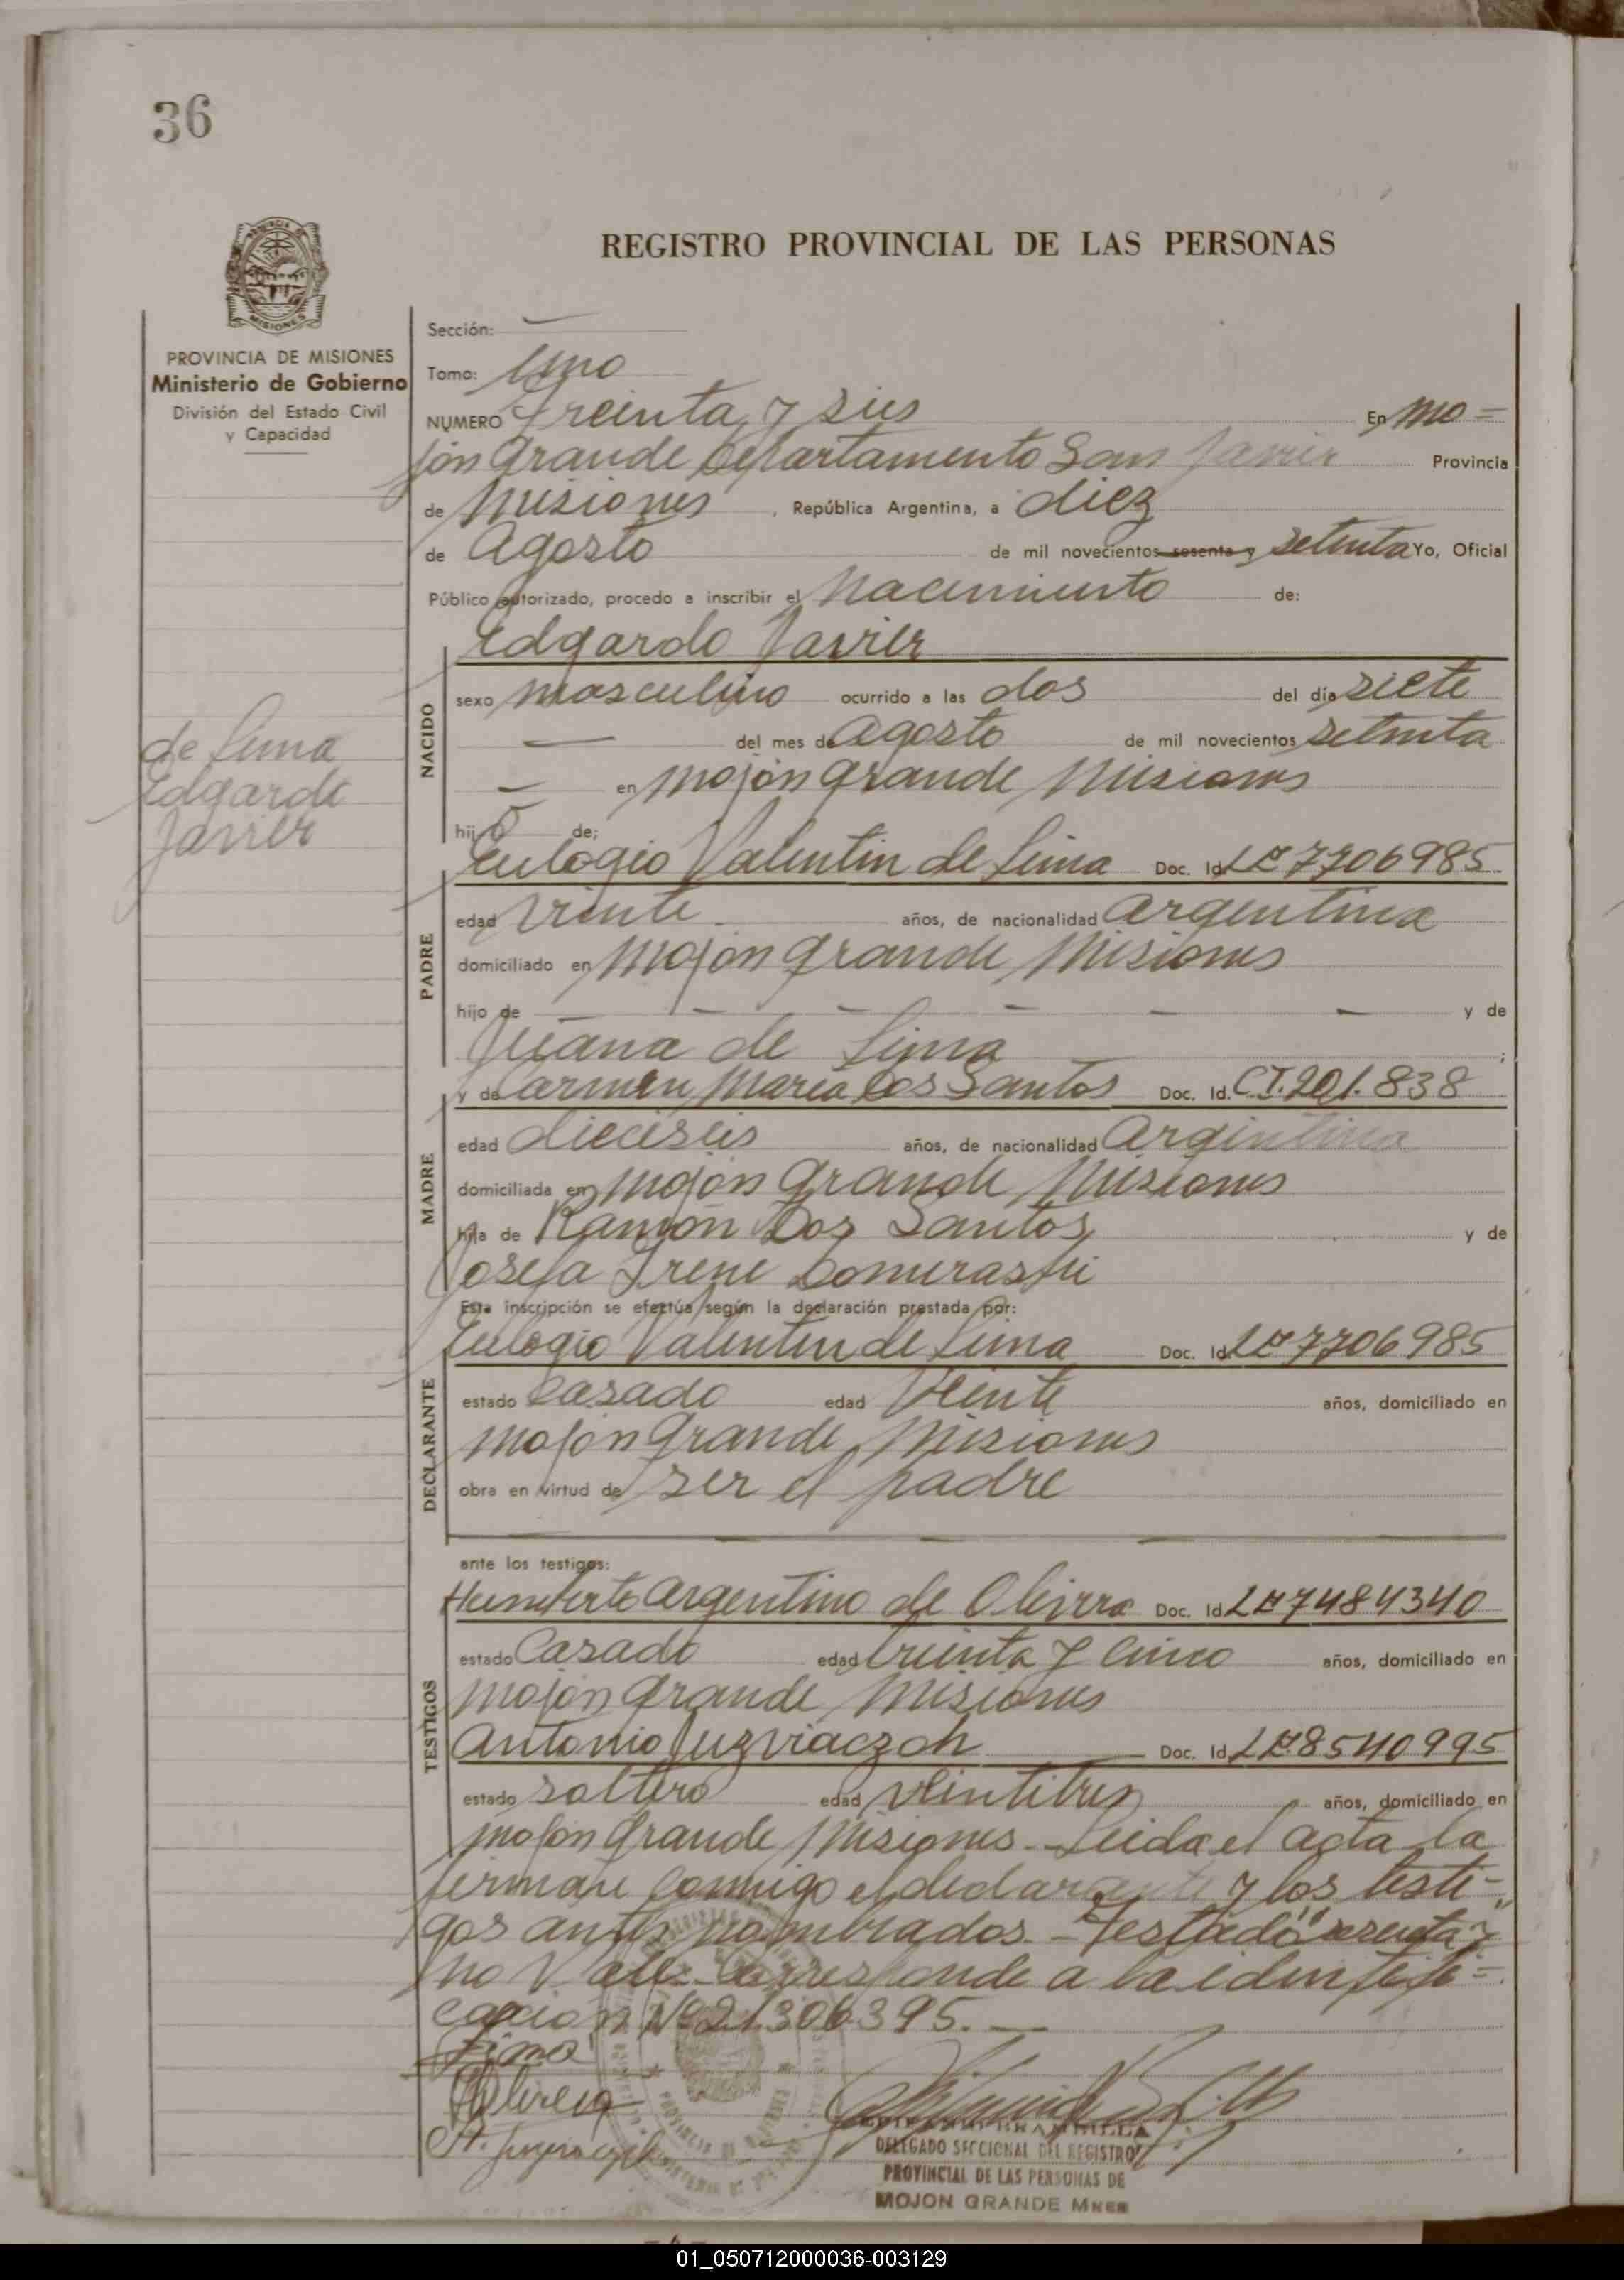 36
REGISTRO PROVINCIAL DE LAS PERSONAS
MISIONES
PROVINCIA DE MISIONES
Ministerio de Gobierno
División del Estado Civil
y Capacidad
Sección: —
Tomo: Uno
NUMERO Treinta y seis En Mo=
jón Grande Departamento San Javier Provincia
de Misiones , República Argentina, a diez
de Agosto de mil novecientos sesenta y setenta Yo, Oficial
Público autorizado, procedo a inscribir el Nacimiento de:
Edgardo Javier
NACIDO
sexo masculino ocurrido a las dos del día siete
— del mes de Agosto de mil novecientos setenta
— en Mojón Grande Misiones
de Lima
Edgardo
Javier
hijo de;
Eulogio Valentin de Lima Doc. Id LE 7706985
PADRE
edad veinte años, de nacionalidad Argentina
domiciliado en Mojón Grande Misiones
hijo de — — — — — y de
Juana de Lima ;
y de Carmen Maria Dos Santos Doc. Id. C.I. 201.838
MADRE
edad dieciseis años, de nacionalidad Argentina
domiciliada en Mojón Grande Misiones
hija de Ramón Dos Santos y de
Josefa Irene
Esta inscripción se efectúa según la declaración prestada por:
Eulogio Valentin de Lima Doc. Id LE 7706985
DECLARANTE
estado Casado edad Veinte años, domiciliado en
Mojón Grande Misiones
obra en virtud de ser el padre
ante los testigos:
Humberto Argentino de Oliveira Doc. Id LE 7484340
TESTIGOS
estado Casado edad treinta y cinco años, domiciliado en
Mojón Grande Misiones
Antonio Doc. Id LE 8540995
estado soltero edad veintitres años, domiciliado en
Mojón Grande Misiones. Leida el acta la
firman conmigo el declarante y los testi-
gos antes nombrados. - Testado "sesenta y"
no Vale. Corresponde a la identifi=
cación Nº 21.306.395. —
Lima
DELEGADO SECCIONAL DEL REGISTRO
PROVINCIAL DE LAS PERSONAS DE
MOJON GRANDE MNES
01_050712000036-003129